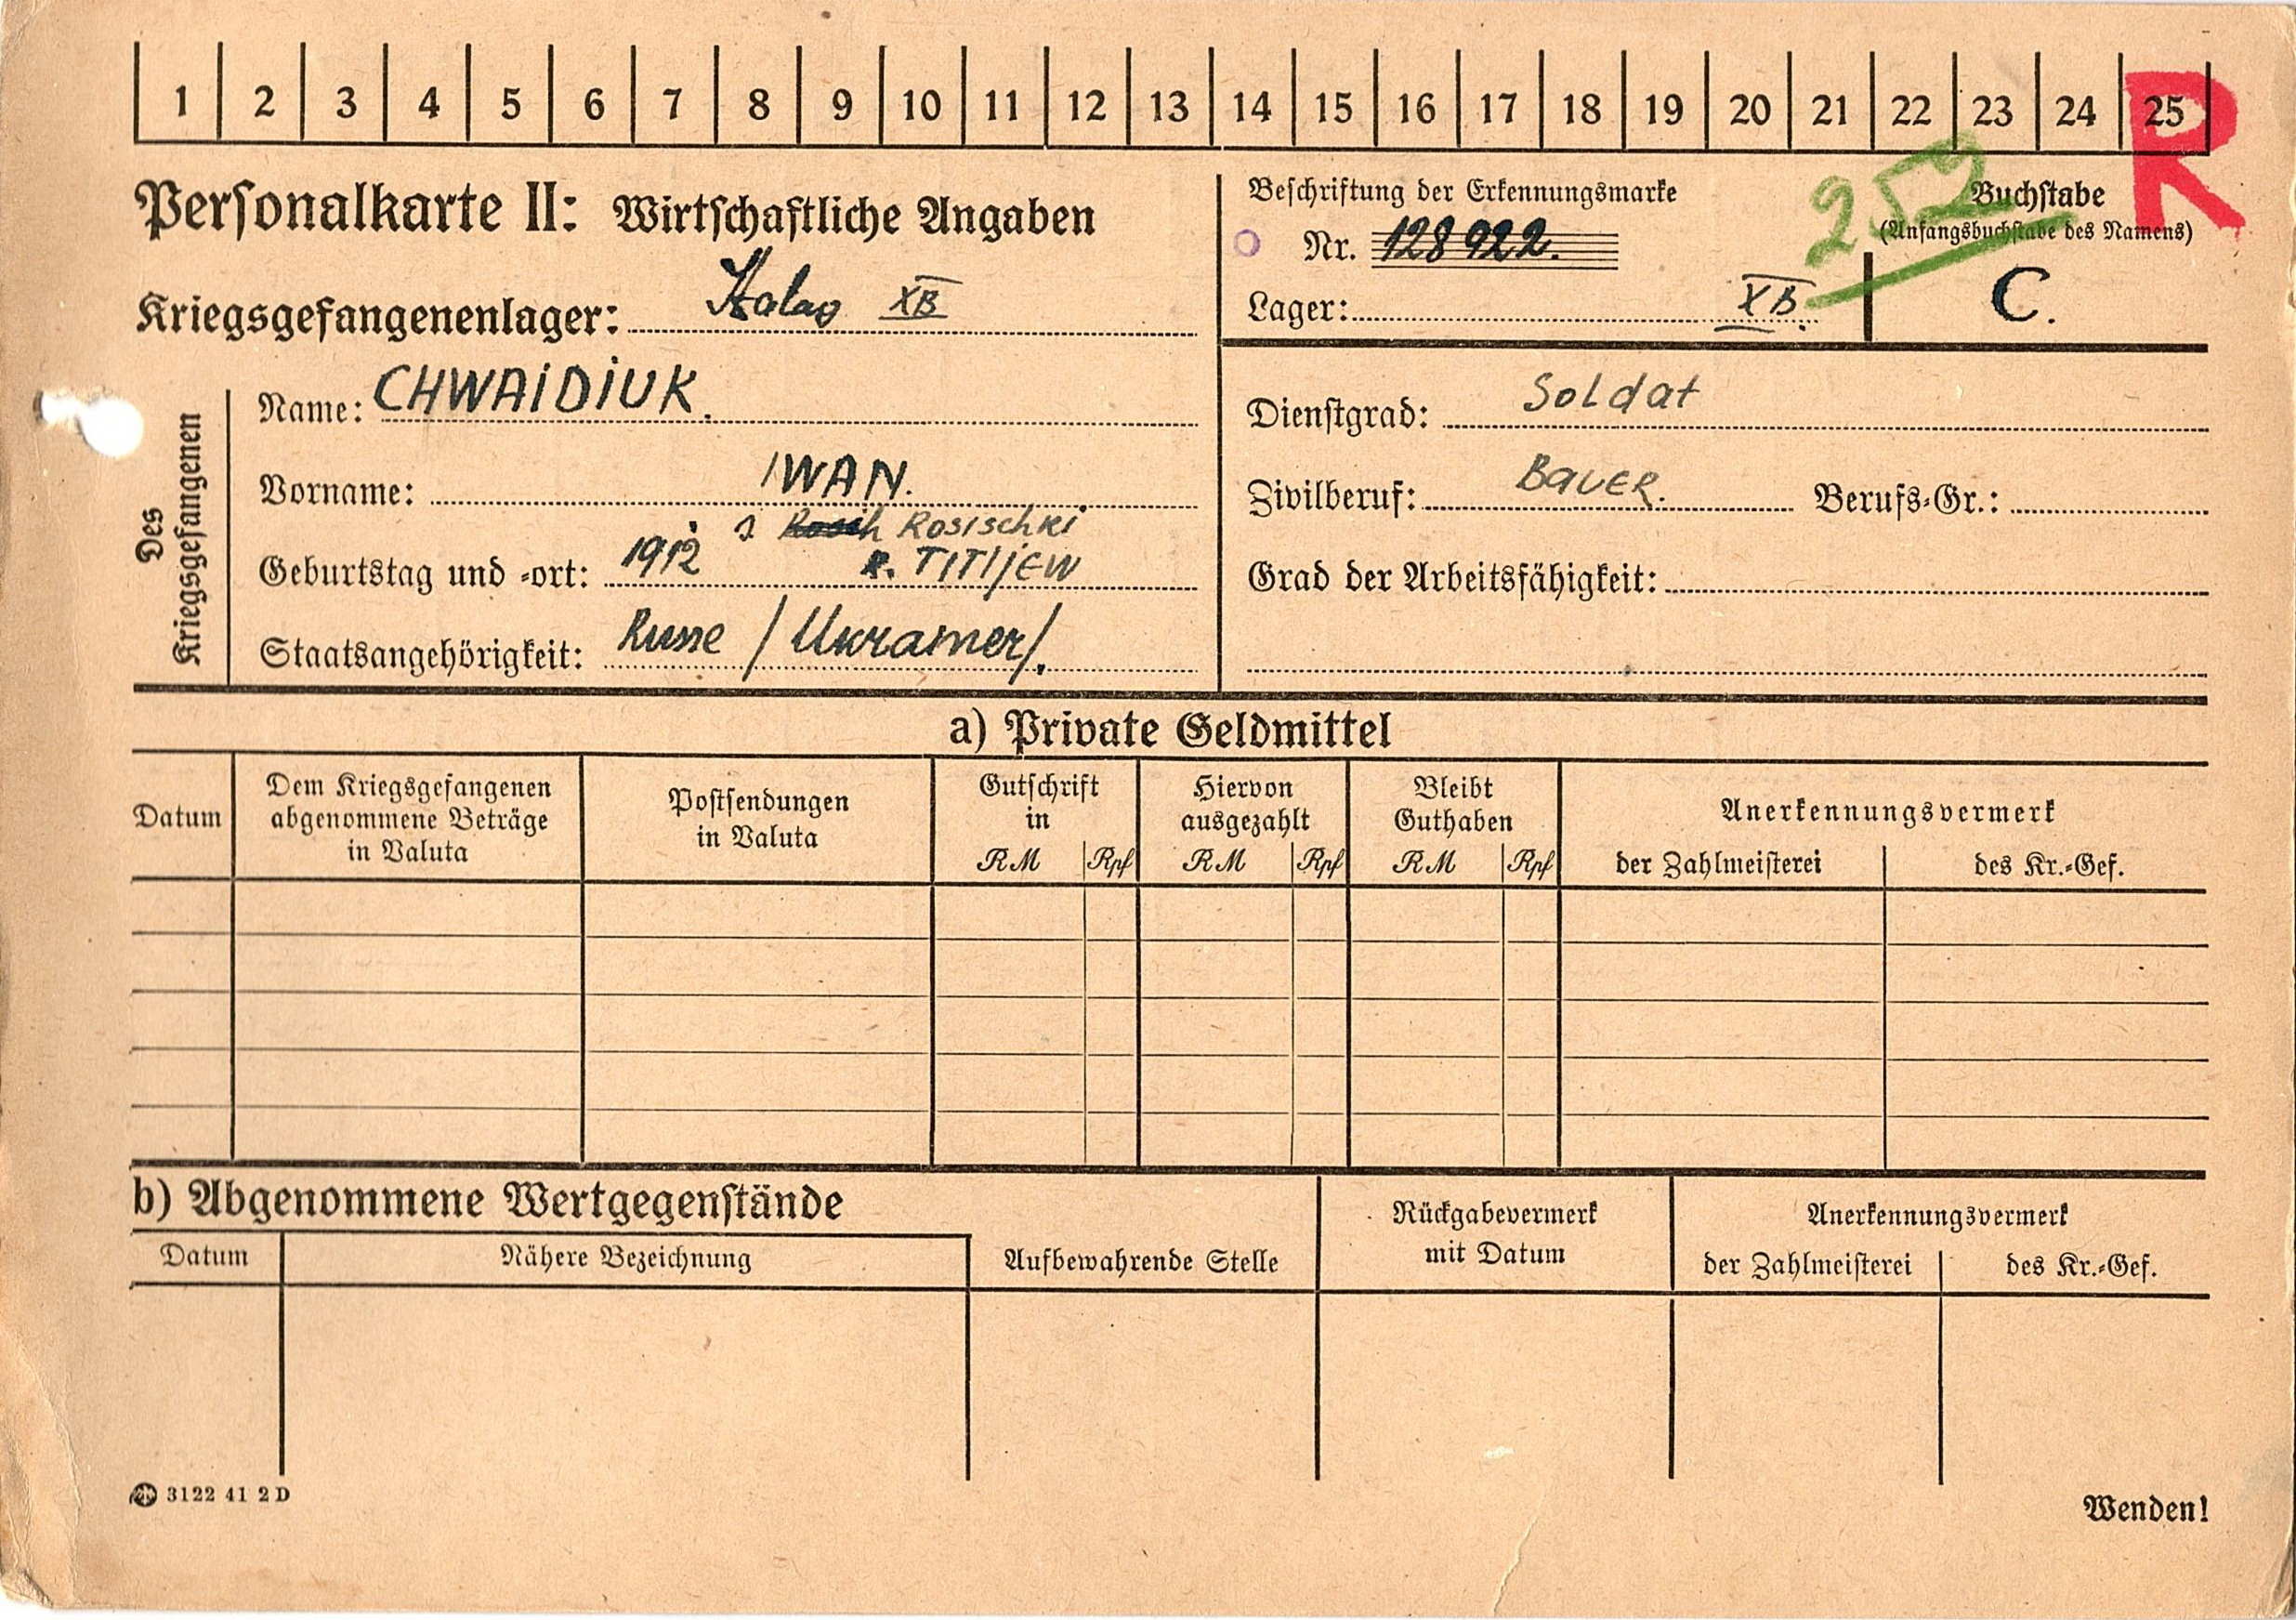 1 2 3 4 5 6 7 8 9 10 11 12 13 14 15 16 17 18 19 20 21 22 23 24 25
R
Personalkarte II: Wirtschaftliche Angaben
Kriegsgefangenenlager: Stalag XB
Beschriftung der Erkennungsmarke
Nr. 128922.
Lager: XB.
Buchstabe
(Anfangsbuchstabe des Namens)
C.
Des
Kriegsgefangenen
Name: CHWAIDIUK.
Vorname: IWAN.
Rosischki
Geburtstag und -ort: 1912 R. TITIJEW
Staatsangehörigkeit: Russe /Ukrainer/.
Dienstgrad: Soldat
Zivilberuf: BAUER. Berufs-Gr.:
Grad der Arbeitsfähigkeit:
a) Private Geldmittel
Datum
Dem Kriegsgefangenen
abgenommene Beträge
in Valuta
Postsendungen
in Valuta
Gutschrift
in
RM Rpf
Hiervon
ausgezahlt
RM Rpf
Bleibt
Guthaben
RM Rpf
Anerkennungsvermerk
der Zahlmeisterei des Kr.-Gef.
b) Abgenommene Wertgegenstände
Datum
Nähere Bezeichnung
Aufbewahrende Stelle
Rückgabevermerk
mit Datum
Anerkennungsvermerk
der Zahlmeisterei des Kr.-Gef.
3122 41 2 D
Wenden!